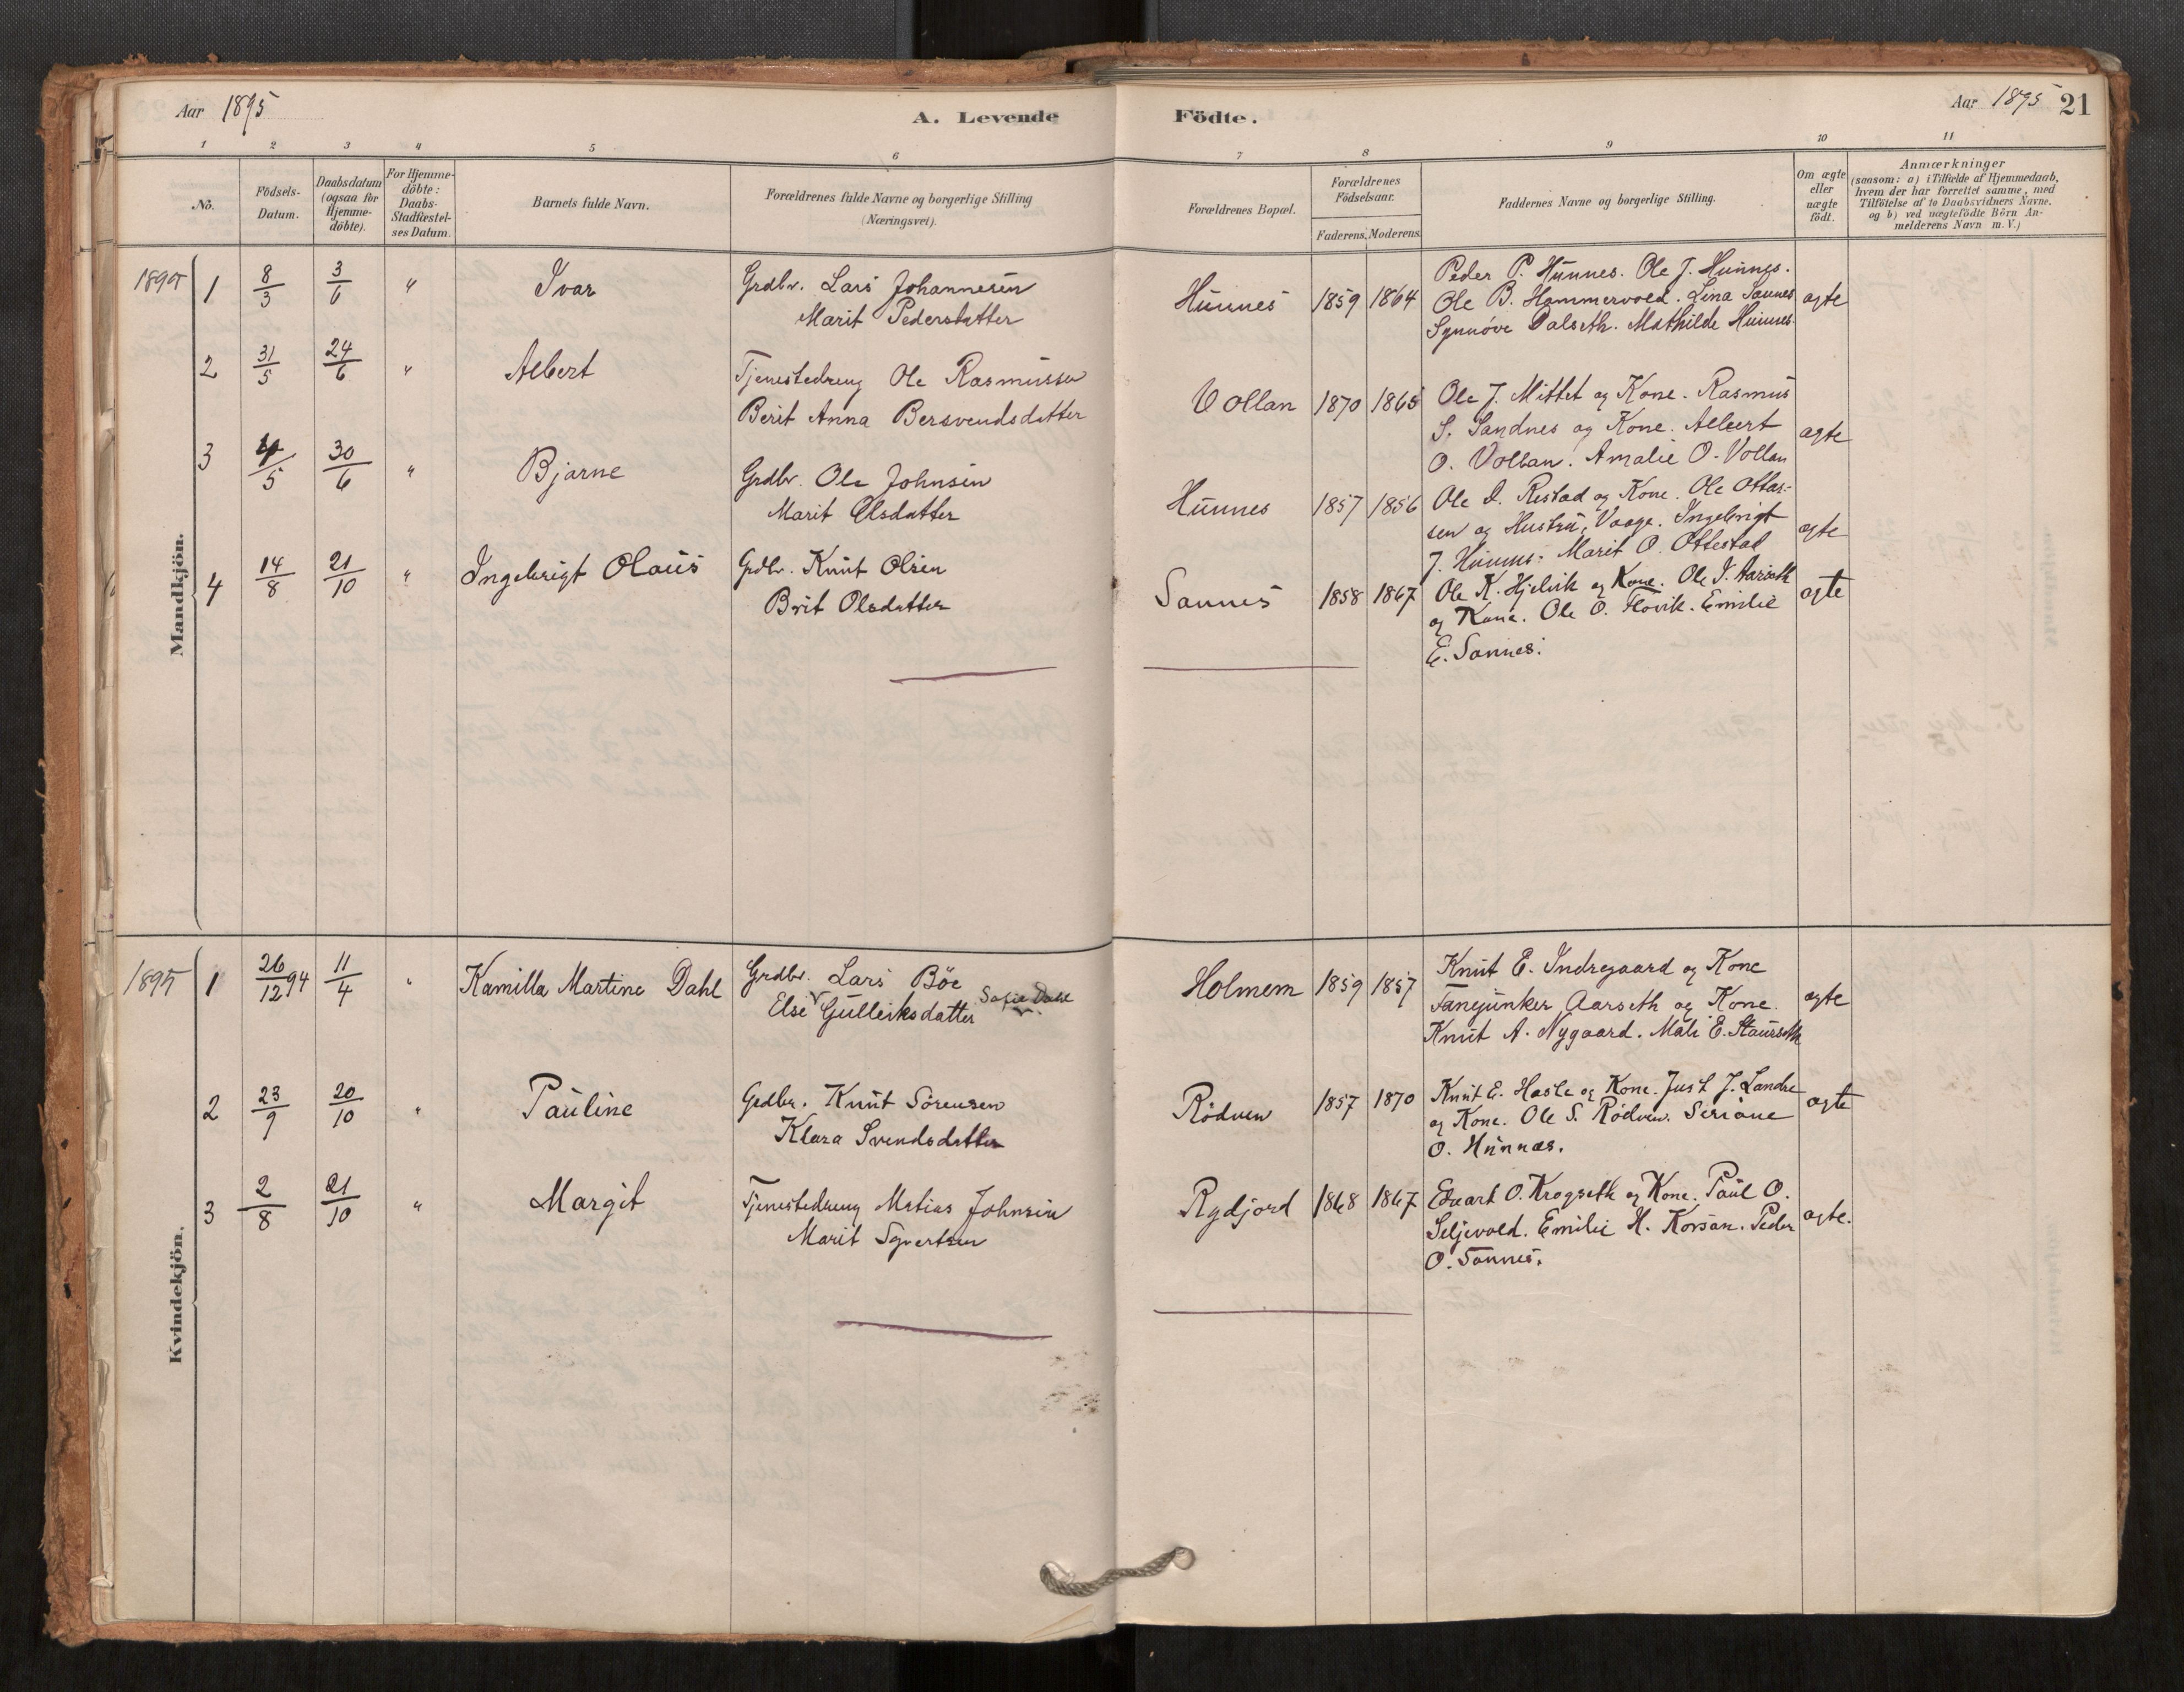 Aar 1895
A. Levende Födte.
Aar 1895 21
1 2 3 4 5 6 7 8 9 10 11
No.
Födsels-Datum.
Daabsdatum (ogsaa for Hjemme-döbte).
For Hjemme-döbte: Daabs-Stadfæstel-ses Datum.
Barnets fulde Navn.
Forældrenes fulde Navne og borgerlige Stilling (Næringsvei).
Forældrenes Bopæl.
Forældrenes Födselsaar.
Faderens. Moderens.
Faddernes Navne og borgerlige Stilling.
Om ægte eller uægte födt.
Anmærkninger (saasom: a) i Tilfælde af Hjemmedaab, hvem der har forrettet samme, med Tilföielse af to Daabsvidners Navne. og b) ved uægtefödte Börn An-melderens Navn m.V.)
Mandkjön.
1895 1 8/3 3/6 " Ivar Grdbr. Lars Johannesen Hunnes 1859 1864 Peder P. Hunnes. Ole J. Hunnes. ægte
Marit Pedersdatter Ole B. Hammervold. Lina Sannes
Synnöve Dalseth. Mathilde Hunnes.
2 31/5 24/6 " Albert Tjenestedreng Ole Rasmussen Vollan 1870 1865 Ole J. Mittet og Kone. Rasmus ægte
Berit Anna Bersvendsdatter S. Sandnes og Kone. Albert
O. Vollan. Amalie O. Vollan
3 4/5 30/6 " Bjarne Grdbr. Ole Johnsen Hunnes 1857 1856 Ole D. Restad og Kone. Ole Ottar- ægte
Marit Olsdatter sen og Hustru, Vaage. Ingebrigt
J. Hunnes. Marit O. Ottestad
4 14/8 21/10 " Ingebrigt Olaus Grdbr. Knut Olsen Sannes 1858 1867 Ole K. Hjelvik og Kone. Ole I. Aarseth ægte
Brit Olsdatter og Kone. Ole O. Flovik. Emilie
E. Sannes.
Kvindekjön.
1895 1 26/12 94 11/4 " Kamilla Martine Dahl Grdbr. Lars Böe Holmem 1859 1857 Knut E. Indregaard og Kone ægte
Else Gulleiksdatter Sofie Dahl Fanejunker Aarseth og Kone.
Knut A. Nygaard. Mali E. Staurseth
2 23/9 20/10 " Pauline Grdbr. Knut Sörensen Rödven 1857 1870 Knut E. Hasle og Kone. Just J. Landre ægte
Klara Svendsdatter og Kone. Ole S. Rödven. Seriane
O. Hunnæs.
3 2/8 21/10 " Margit Tjenestedreng Matias Johnsen Rydjord 1868 1867 Edvart O. Krogseth og Kone. Paul O. ægte.
Marit Syvertsen Seljevold. Emilie H. Korsan. Peder
O. Sannes.